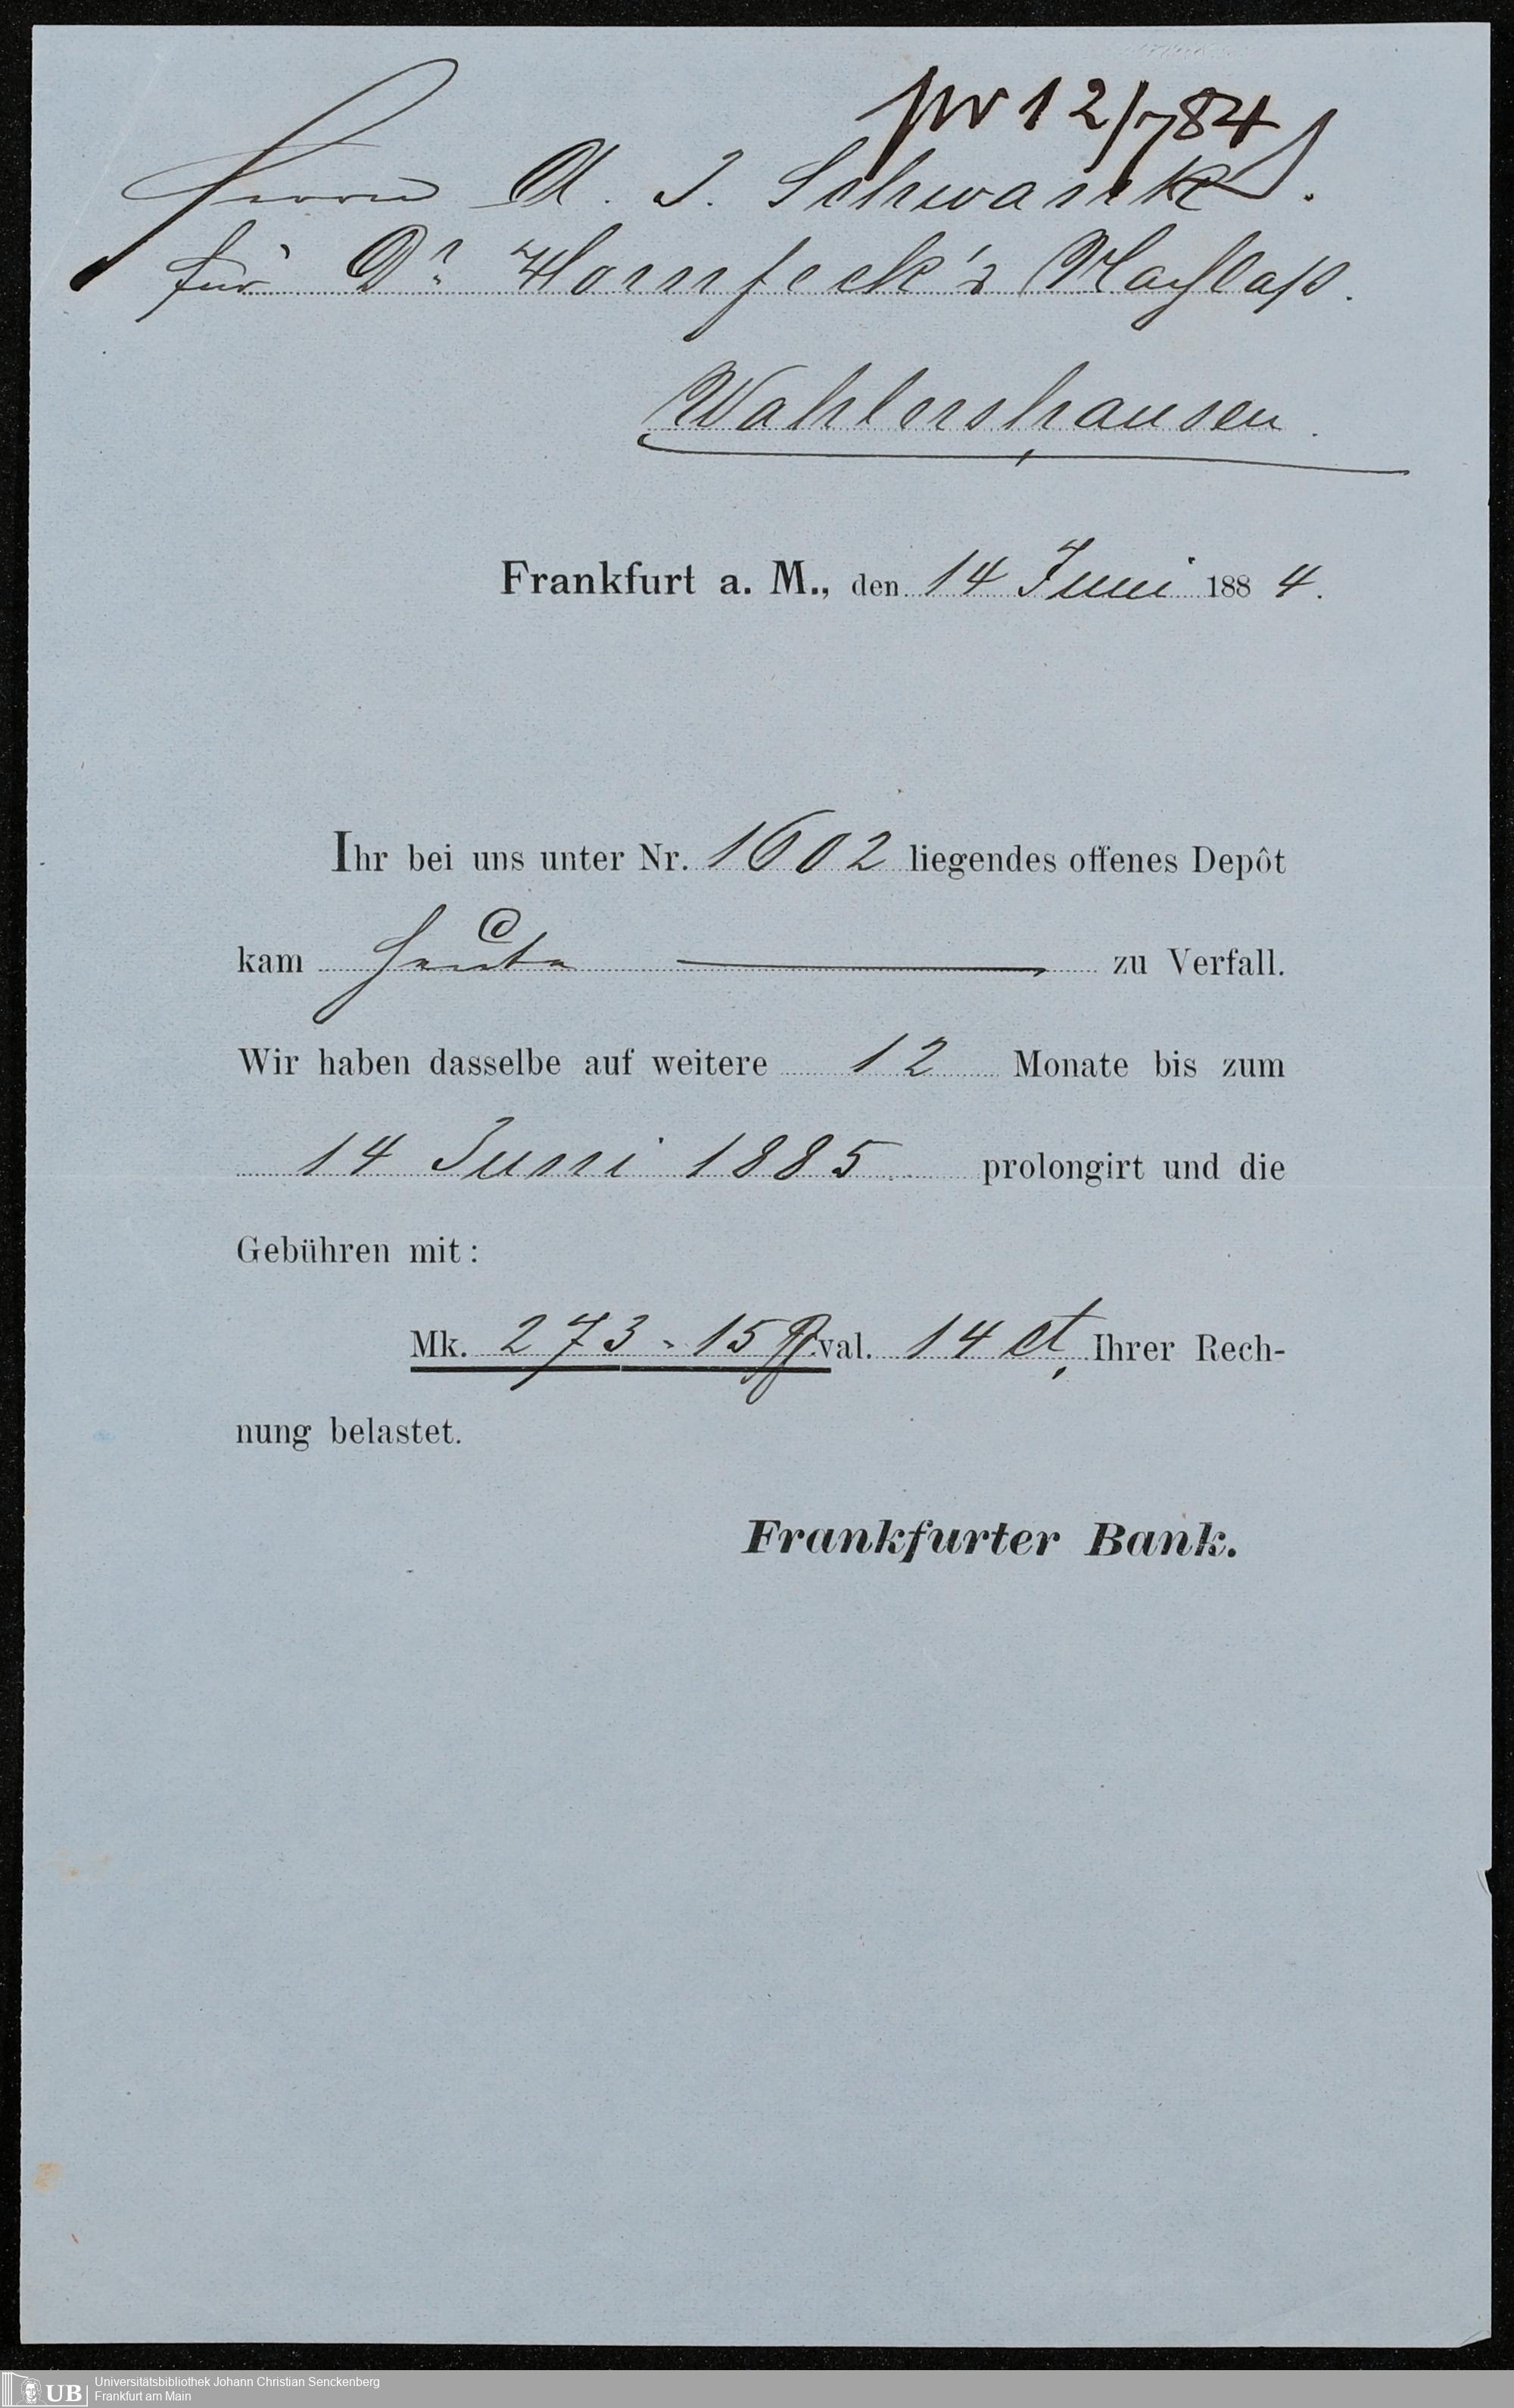 pr 12/7 84
Herrn A. J. Schwarck.
für Dr. Hornfeck's Nachlaß.
Wahlershausen.
Frankfurt a. M., den 14 Juni 1884.
Ihr bei uns unter Nr. 1602 liegendes offenes Depôt
kam heute zu Verfall.
Wir haben dasselbe auf weitere 12 Monate bis zum
14 Juni 1885 prolongirt und die
Gebühren mit:
Mk. 273.15 val. 14 ct, Ihrer Rech-
nung belastet.
Frankfurter Bank.
UB Universitätsbibliothek Johann Christian Senckenberg
Frankfurt am Main